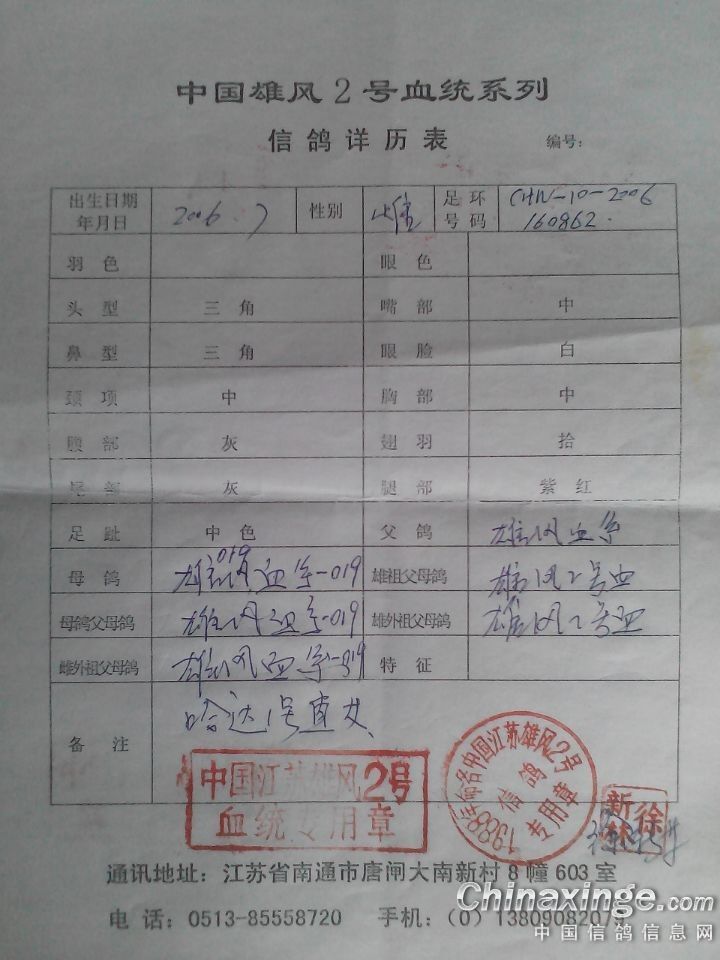 中国雄风2号血统系列
信鸽详历表
编号：
出生日期 年月日 2006.7 性别 雌 足环号码 CHN-10-2006 160862.
羽色 眼色
头型 三角 嘴部 中
鼻型 三角 眼脸 白
颈项 中 胸部 中
腰部 灰 翅羽 拾
尾部 灰 腿部 紫红
足趾 中色 父鸽 雄风血系
母鸽 雄风血系-019 雄祖父母鸽 雄风2号血
母鸽父母鸽 雄风血系-019 雄外祖父母鸽 雄风2号血
雌外祖父母鸽 雄风血系-019 特征
备注 哈达1号直女
中国江苏雄风2号
血统专用章
1988年命名中国江苏雄风2号
信鸽
专用章
徐新林
通讯地址：江苏省南通市唐闸大南新村8幢603室
电话：0513-85558720 手机：(0)1380908207
Chinaxinge.com
中国信鸽信息网